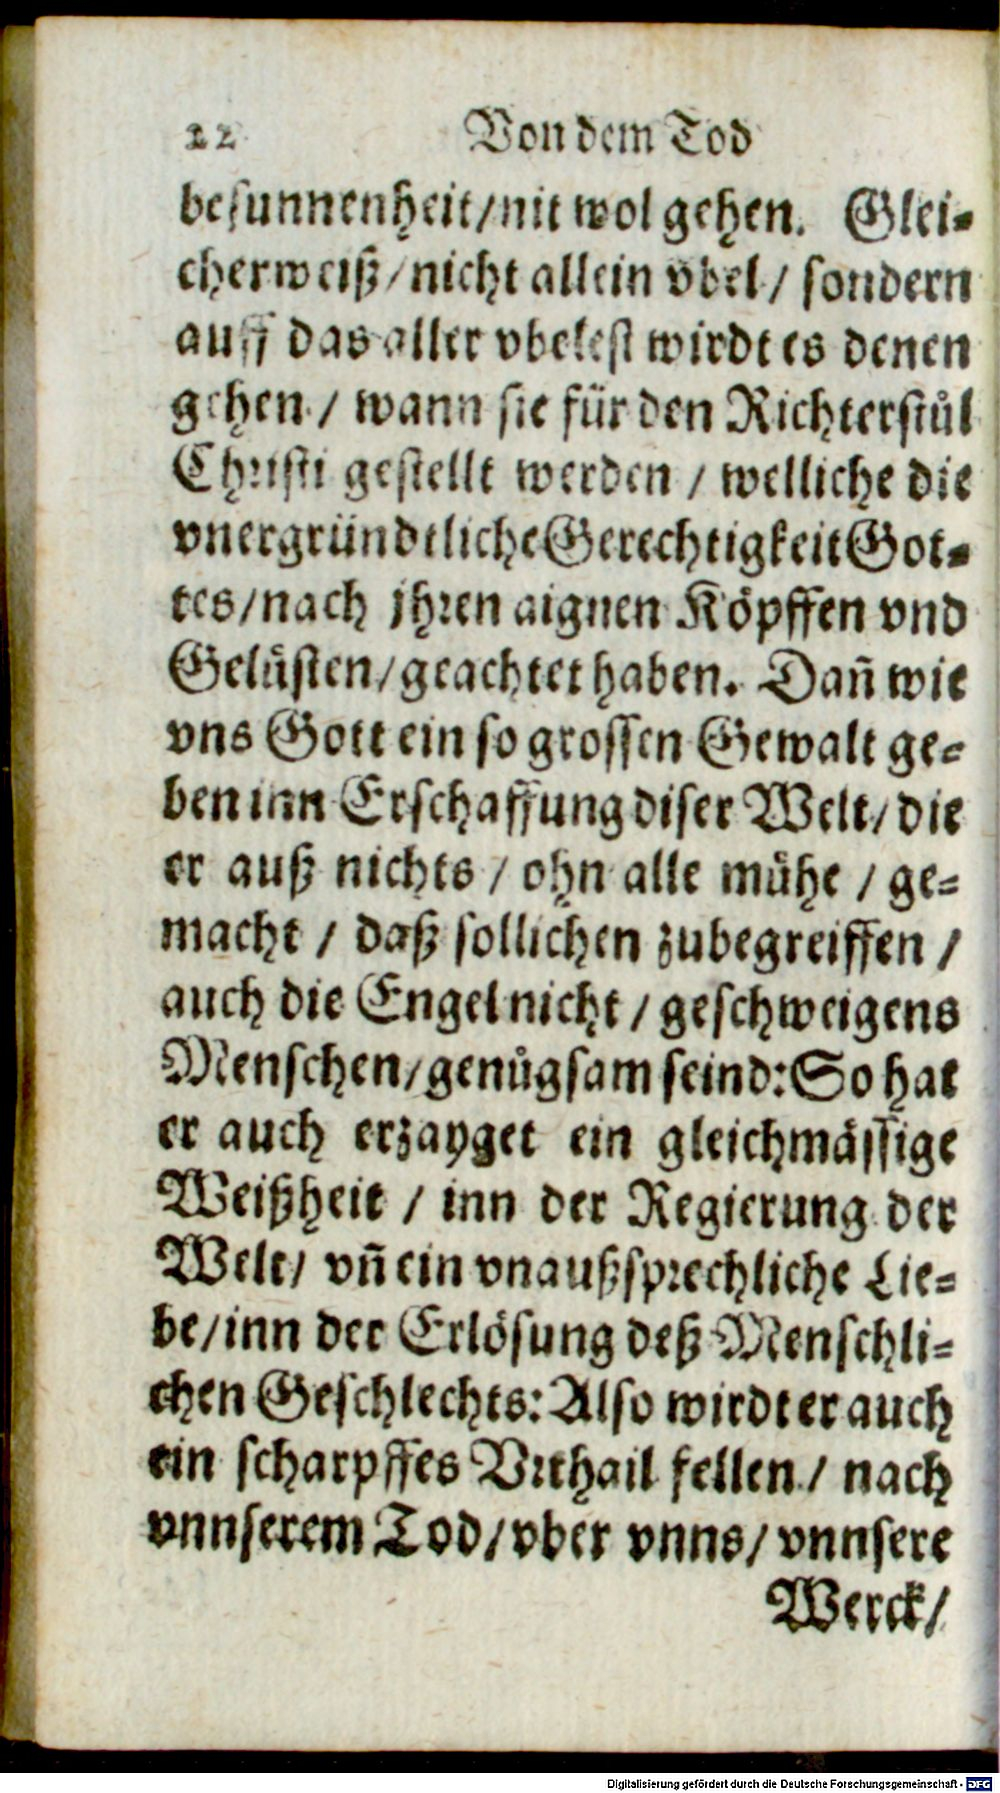 22 Von dem Tod
besunnenheit/nit wol gehen. Glei-
cherweiß/nicht allein vbel/ sondern
auff das aller vbelest wirdt es denen
gehen/ wann sie für den Richterstůl
Christi gestellt werden/ welliche die
vnergründtliche Gerechtigkeit Got-
tes/nach jhren aignen Köpffen vnd
Gelüsten/geachtet haben. Dañ wie
vns Gott ein so grossen Gewalt ge-
ben inn Erschaffung diser Welt/die
er auß nichts/ ohn alle mühe/ ge-
macht/ daß sollichen zubegreiffen/
auch die Engel nicht/ geschweigens
Menschen/genůgsam seind: So hat
er auch erzayget ein gleichmässige
Weißheit/ inn der Regierung der
Welt/ vñ ein vnaußsprechliche Lie-
be/inn der Erlösung deß Menschli-
chen Geschlechts: Also wirdt er auch
ein scharpffes Vrthail fellen/ nach
vnnserem Tod/vber vnns/ vnnsere
Werck/
Digitalisierung gefördert durch die Deutsche Forschungsgemeinschaft - DFG